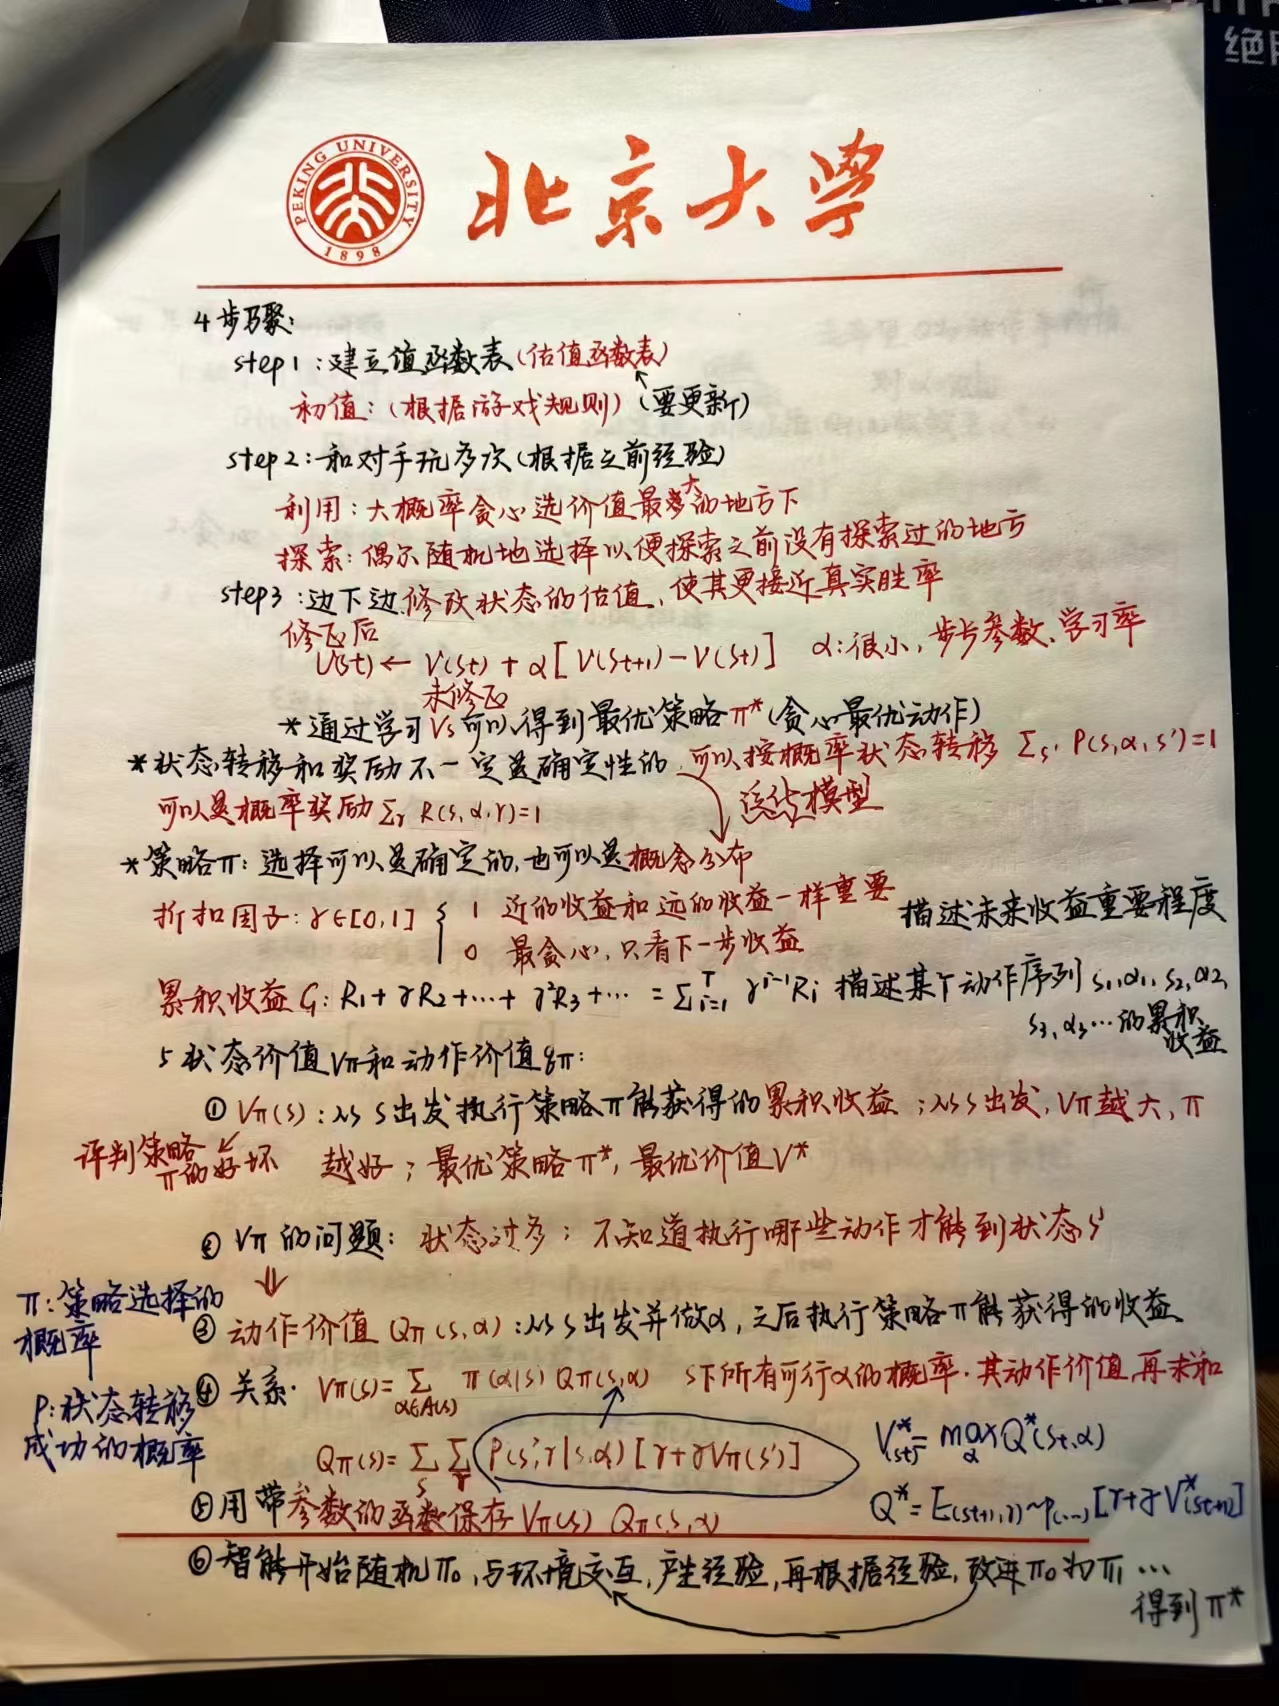 绝
PEKING UNIVERSITY
1898
北京大学
4 步骤:
step1:建立值函数表(估值函数表)
初值:(根据游戏规则)(要更新)
step2:和对手玩多次(根据之前经验)
利用:大概率贪心选价值最大的地方下
探索:偶尔随机地选择以便探索之前没有探索过的地方
step3:边下边修改状态的估值,使其更接近真实胜率
修正后
V(St) ← V(St) + α[V(St+1) - V(St)] α:很小,步长参数、学习率
未修正
*通过学习Vs可以得到最优策略π*(贪心最优动作)
*状态转移和奖励不一定是确定性的,可以按概率状态转移 Σs' P(s,α,s')=1
可以是概率奖励Σr R(s,α,r)=1
模型
*策略π:选择可以是确定的,也可以是概念分布
折扣因子:γ∈[0,1] { 1 近的收益和远的收益一样重要
0 最贪心,只看下一步收益
描述未来收益重要程度
累积收益G:R1+γR2+…+γ²R3+… =Σ_{i=1}^T γ^{i-1}Ri 描述某个动作序列S1,α1,S2,α2,
S3,α3…的累积
收益
5 状态价值Vπ和动作价值qπ:
①Vπ(s):从S出发执行策略π能获得的累积收益;从S出发,Vπ越大,π
越好;最优策略π*,最优价值V*
评判策略
π的好坏
②Vπ的问题:状态过多;不知道执行哪些动作才能到状态S'
⇓
③动作价值Qπ(s,α):从S出发并做α,之后执行策略π能获得的收益
π:策略选择的
概率
④关系. Vπ(s)=Σ_{α∈A(s)} π(α|s) Qπ(s,α) S下所有可行α的概率·其动作价值,再求和
P:状态转移
成功的概率
Qπ(s)=Σ_{s'}Σ_r P(s',r|s,α)[r+γVπ(s')]
V*(st)=max_α Q*(St,α)
Q*=E(st+1,r)~P(...)[r+γV*(st+1)]
⑤用带参数的函数保存Vπ(s) Qπ(s,α)
⑥智能开始随机π0,与环境交互,产生经验,再根据经验,改进π0为π1…
得到π*